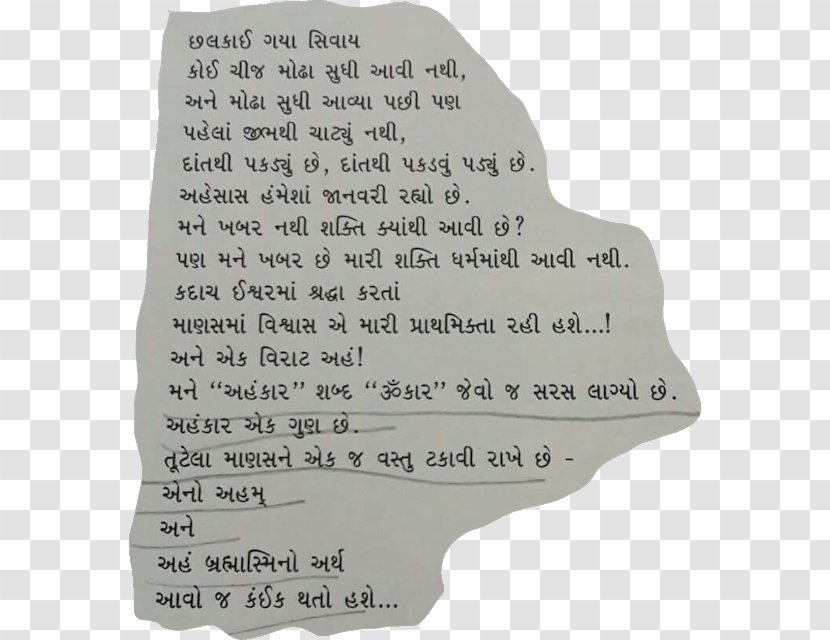 છલકાઈ ગયા સિવાય
કોઈ ચીજ મોઢા સુધી આવી નથી,
અને મોઢા સુધી આવ્યા પછી પણ
પહેલાં જીભથી ચાટ્યું નથી,
દાંતથી પકડ્યું છે, દાંતથી પકડવું પડ્યું છે.
અહેસાસ હંમેશાં જાનવરી રહ્યો છે.
મને ખબર નથી શક્તિ ક્યાંથી આવી છે?
પણ મને ખબર છે મારી શક્તિ ધર્મમાંથી આવી નથી.
કદાચ ઈશ્વરમાં શ્રદ્ધા કરતાં
માણસમાં વિશ્વાસ એ મારી પ્રાથમિક્તા રહી હશે...!
અને એક વિરાટ અહં!
મને “અહંકાર” શબ્દ “ૐકાર” જેવો જ સરસ લાગ્યો છે.
અહંકાર એક ગુણ છે.
તૂટેલા માણસને એક જ વસ્તુ ટકાવી રાખે છે -
એનો અહમ્
અને
અહં બ્રહ્માસ્મિનો અર્થ
આવો જ કંઈક થતો હશે...